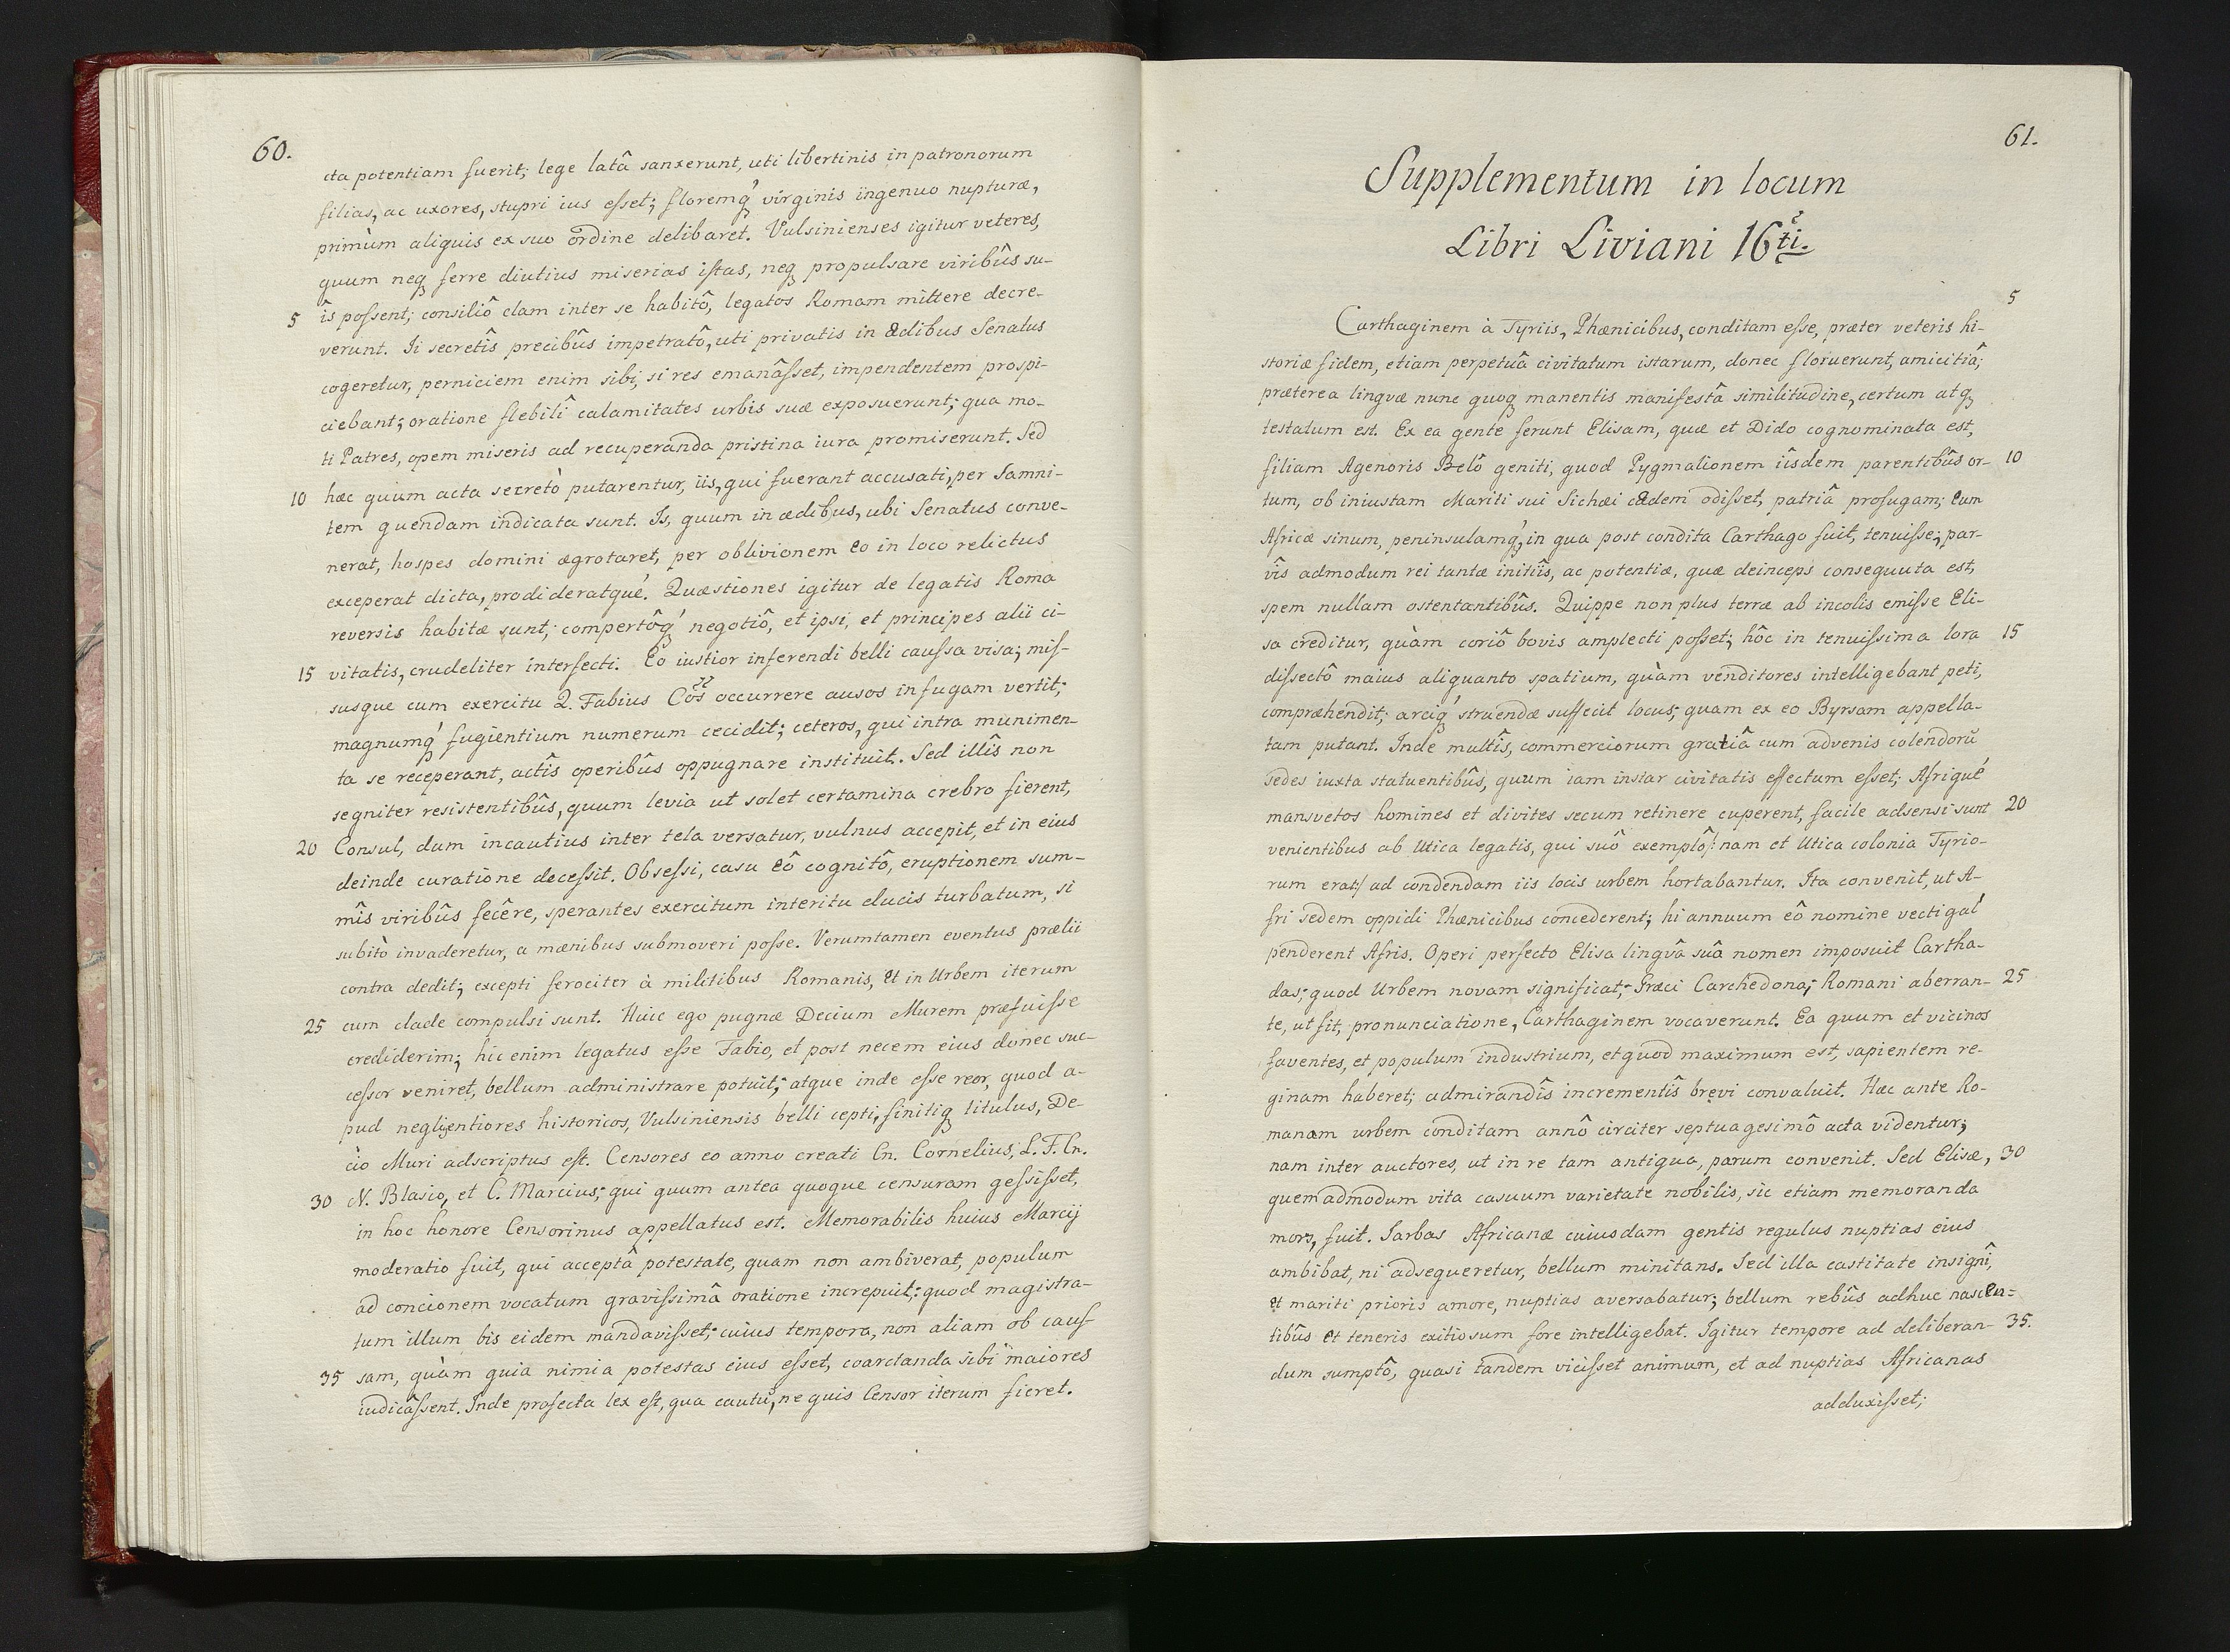 60.
cta potentiam fuerit; lege latâ sanxerunt, uti libertinis in patronorum
filias, ac uxores, stupri ius eſset; floremq́ virginis ingenuo nupturæ,
primùm aliquis ex suo ordine delibaret. Vulsinienses igitur veteres,
quum neq ferre diutius miserias iſtas, neq propulsare viribûs su-
5 îs poſsent; consiliô clam inter se habitô, legatos Romam mittere decre-
verunt. Ii secretîs precibûs impetratô, uti privatis in ædibus Senatus
cogeretur, perniciem enim sibi, si res emanâſset, impendentem prospi-
ciebant; oratione flebilî calamitates urbis suæ exposuerunt; qua mo-
ti Patres, opem miseris ad recuperanda pristina iura promiserunt. Sed
10 hæc quum acta secretò putarentur, iis, qui fuerant accusati, per Samni-
tem quendam indicata sunt. Is, quum in ædibus, ubi Senatus conve-
nerat, hospes domini ægrotaret, per oblivionem eo in loco relictus
exceperat dicta, prodideratqué. Quæstiones igitur de legatis Roma
reversis habitæ sunt; compertôq́ negotiô, et ipsi, et principes alii ci-
15 vitatis, crudeliter interfecti. Eo iustior inferendi belli cauſsa visa; miſ-
susque cum exercitu Q. Fabius Cos occurrere ausos in fugam vertit;
magnumq́ fugientium numerum cecidit; ceteros, qui intra munimen-
ta se receperant, actîs operibûs oppugnare instituit. Sed illîs non
segniter resistentibûs, quum levia ut solet certamina crebro fierent,
20 Consul, dum incautius inter tela versatur, vulnus accepit, et in eius
deinde curatione deceſsit. Obseſsi, casu eô cognitô, eruptionem sum-
mîs viribûs fecêre, sperantes exercitum interitu ducis turbatum, si
subitò invaderetur, a mœnibus submoveri poſse. Verumtamen eventus prælii
contra dedit; excepti ferociter à militibus Romanis, et in Urbem iterum
25 cum clade compulsi sunt. Huic ego pugnæ Decium Murem præfuiſse
crediderim; hic enim legatus eſse Fabio, et post necem eius donec suc-
ceſsor veniret, bellum administrare potuit; atque inde eſse reor, quod a-
pud negligentiores historicos, Vulsiniensis belli cepti, finitiq titulus, De-
cio Muri adscriptus eſt. Censores eo anno creati Cn. Cornelius, L. F. Cn.
30 N. Blasio, et C. Marcius; qui quum antea quoque censuram geſsiſset,
in hoc honore Censorinus appellatus est. Memorabilis huius Marcij
moderatio fuit, qui acceptâ potestate, quam non ambiverat, populum
ad concionem vocatum graviſsimâ oratione increpuit; quod magistra-
tum illum bis eidem mandaviſset; cuius tempora, non aliam ob cauſ-
35 sam, quàm quia nimia potestas eius eſset, coarctanda sibi maiores
iudicâſsent. Inde profecta lex eſt, qua cautũ, ne quis Censor iterum fieret.
61.
Supplementum in locum
Libri Liviani 16ti.
5
Carthaginem à Tyriis, Phœnicibus, conditam eſse, præter veteris hi-
storiæ fidem, etiam perpetuâ civitatum istarum, donec floruerunt, amicitiâ;
præterea linguæ nunc quoq manentis manifestâ similitudine, certum atq
testatum est. Ex ea gente ferunt Elisam, quæ et Dido cognominata est,
filiam Agenoris Belô geniti, quod Pygmalionem iîsdem parentibûs or- 10
tum, ob iniustam Mariti sui Sichæi cædem odiſset, patriâ profugam; eum
Africæ sinum, peninsulamq́, in qua post condita Carthago fuit, tenuiſse; par-
vîs admodum rei tantæ initiîs, ac potentiæ, quæ deinceps consequuta est,
spem nullam ostentantibûs. Quippe non plus terræ ab incolis emiſse Eli-
sa creditur, quàm coriô bovis amplecti poſset; hôc in tenuiſsima lora 15
diſsectô maius aliquanto spatium, quàm venditores intelligebant peti,
compræhendit; arciq́ struendæ suffecit locus; quam ex eo Byrsam appella-
tam putant. Inde multîs, commerciorum gratiâ cum advenis colendorũ
sedes iuxta statuentibûs, quum iam instar civitatis effectum eſset; Afriqué
mansvetos homines et divites secum retinere cuperent, facile adsensi sunt 20
venientibus ab Utica legatis, qui suô exemplô /: nam et Utica colonia Tyrio-
rum erat:/ ad condendam iis locis urbem hortabantur. Ita convenit, ut A-
fri sedem oppidi Phœnicibus concederent; hi annuum eô nomine vectigal
penderent Afris. Operi perfecto Elisa linguâ suâ nomen imposuit Cartha-
das; quod Urbem novam significat; Græci Carchedona; Romani aberran- 25
te, ut fit, pronunciatione, Carthaginem vocaverunt. Ea quum et vicinos
faventes, et populum industrium, et quod maximum est, sapientem re-
ginam haberet; admirandîs incrementîs brevi convaluit. Hæc ante Ro-
manam urbem conditam annô circiter septuagesimô acta videntur;
nam inter auctores, ut in re tam antiqua, parum convenit. Sed Elisæ, 30
quemadmodum vita casuum varietate nobilis, sic etiam memoranda
mors, fuit. Iarbas Africanæ cuiusdam gentis regulus nuptias eius
ambibat, ni adsequeretur, bellum minitans. Sed illa castitate insignî,
et mariti prioris amore, nuptias aversabatur; bellum rebûs adhuc nascen-
tibûs et teneris exitiosum fore intelligebat. Igitur tempore ad deliberan- 35.
dum sumptô, quasi tandem viciſset animum, et ad nuptias Africanas
adduxiſset;